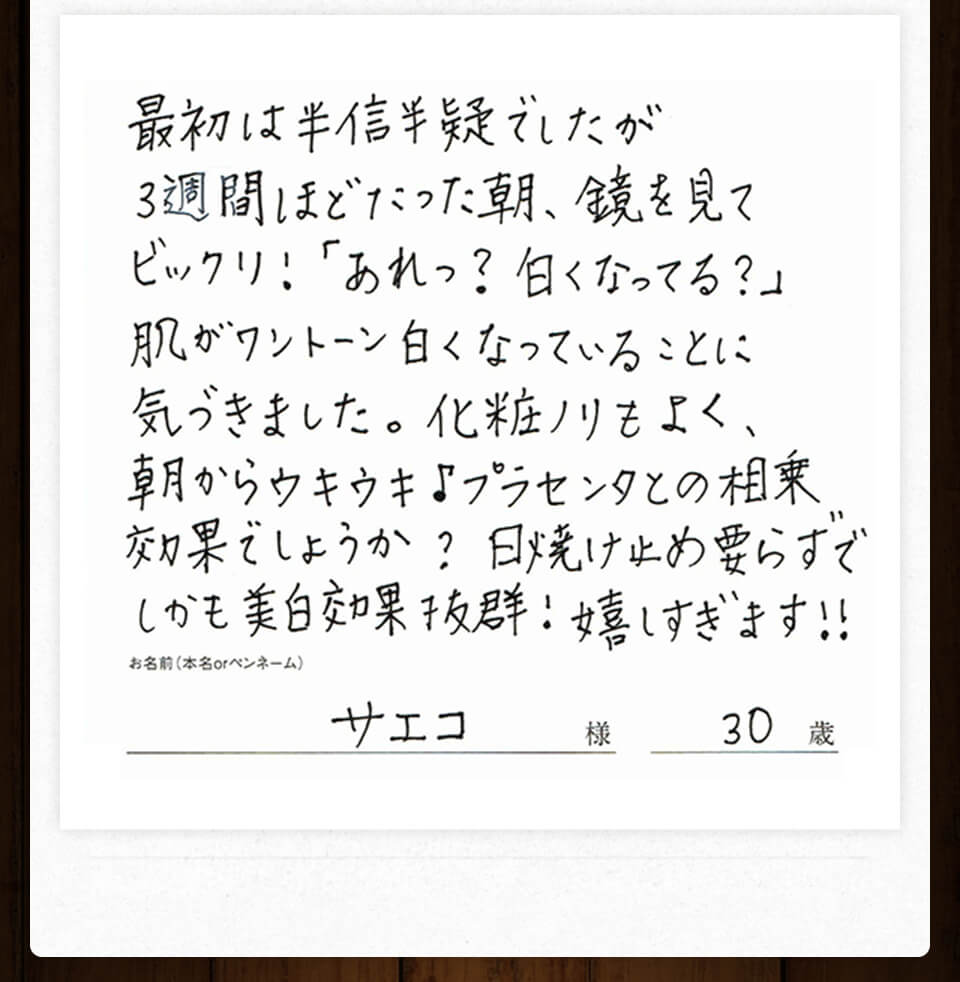 最初は半信半疑でしたが
3週間ほどたった朝、鏡を見て
ビックリ!「あれっ?白くなってる?」
肌がワントーン白くなっていることに
気づきました。化粧ノリもよく、
朝からウキウキ♪プラセンタとの相乗
効果でしょうか?日焼け止め要らずで
しかも美白効果抜群!嬉しすぎます!!
お名前(本名orペンネーム)
サエコ 様 30 歳